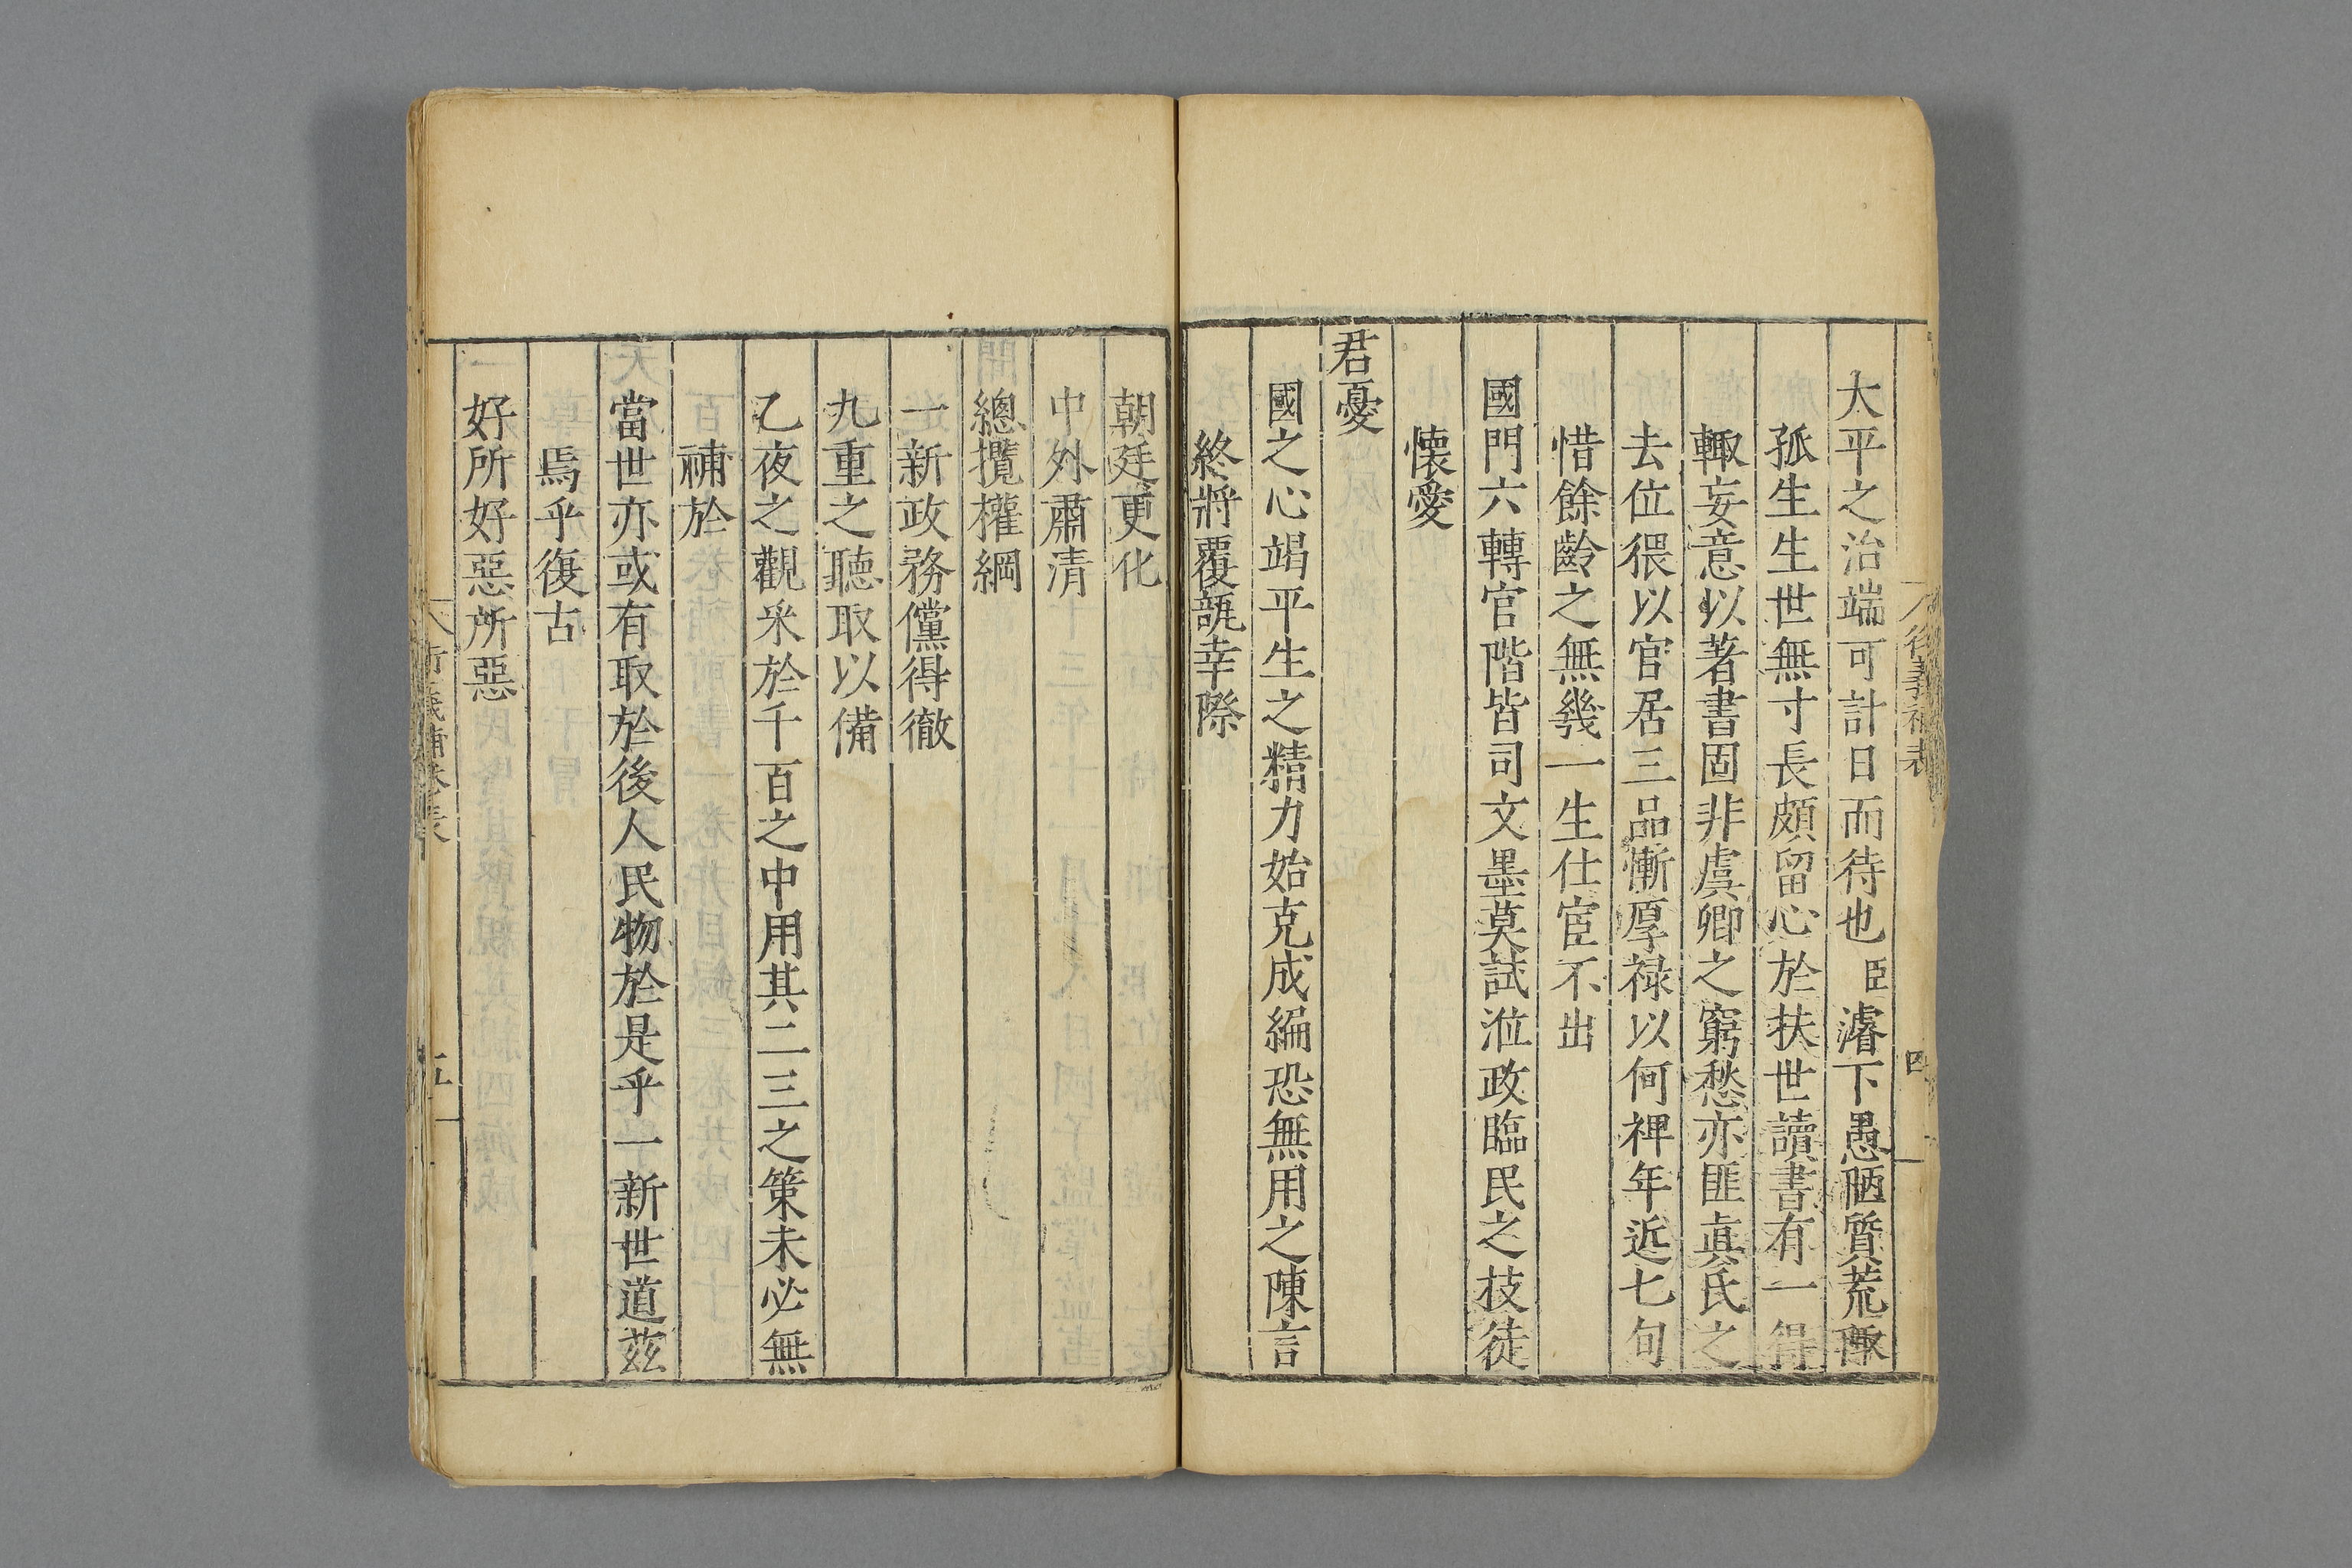 大平之治端可計日而待也臣濬下愚陋質荒陬
孤生生世無寸長頗留心於扶世讀書有一得
輙妄意以著書固非虞卿之窮愁亦匪真氏之
去位猥以官居三品慚厚禄以何裨年近七旬
惜餘齡之無幾一生仕宦不出
國門六轉官階皆司文墨莫試涖政臨民之技徒
懷愛
君憂
國之心竭平生之精力始克成編恐無用之陳言
終將覆瓿幸際
朝廷更化
中外肅清
總攬權綱
一新政務儻得徹
九重之聽取以備
乙夜之觀采於千百之中用其二三之策未必無
補於
當世亦或有取於後人民物於是乎一新世道茲
焉乎復古
好所好惡所惡
四
五